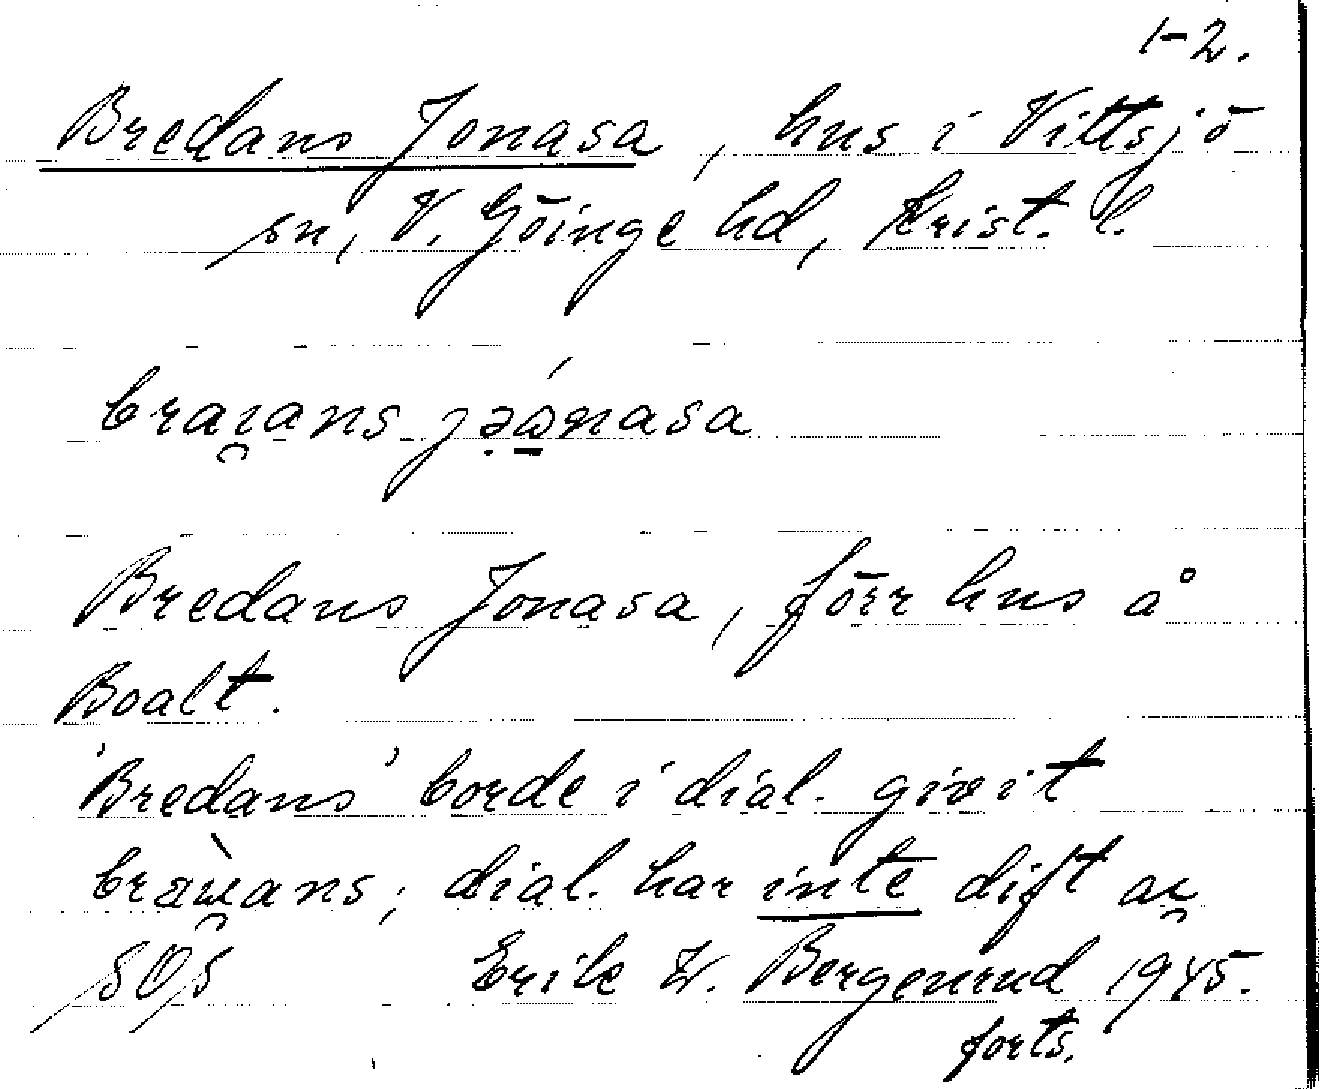 1-2.
Bredans Jonasa, hus i Vittsjö
sn, V. Göinge hd, Krist. l.
braı̯ans jəώnasa
Bredans Jonasa, förr hus å
Boalt.
'Bredans' borde i dial. givit
ans; dial. har inte dift
Erik W. Bergenrud 1945.
forts.